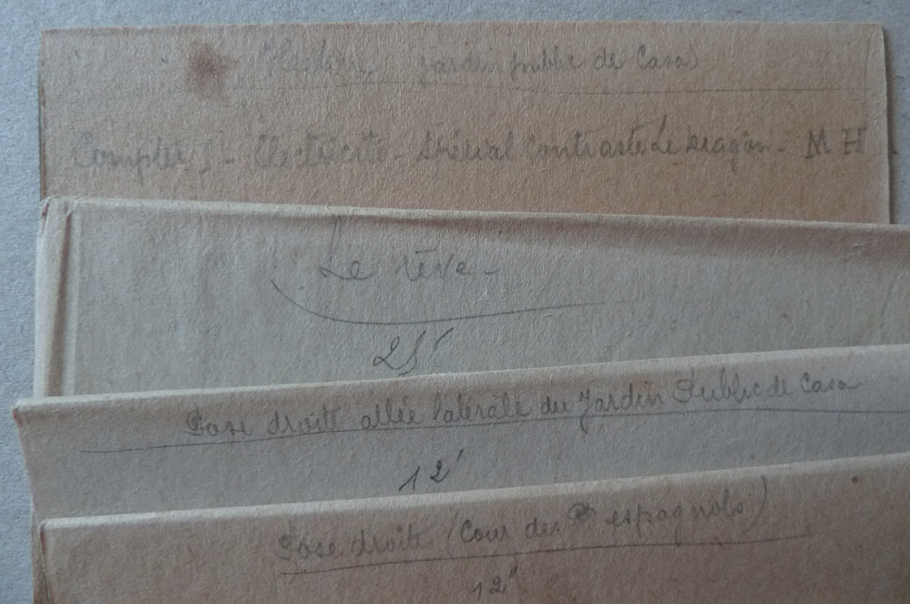 jardin public de Casa)
Comptes - Electricité - Spécial Contraste Le Dragon - M H
Le rêve -
25'
Pose droite allée latérale du Jardin Public de Casa
12'
Pose droite (Cour des espagnols)
12"